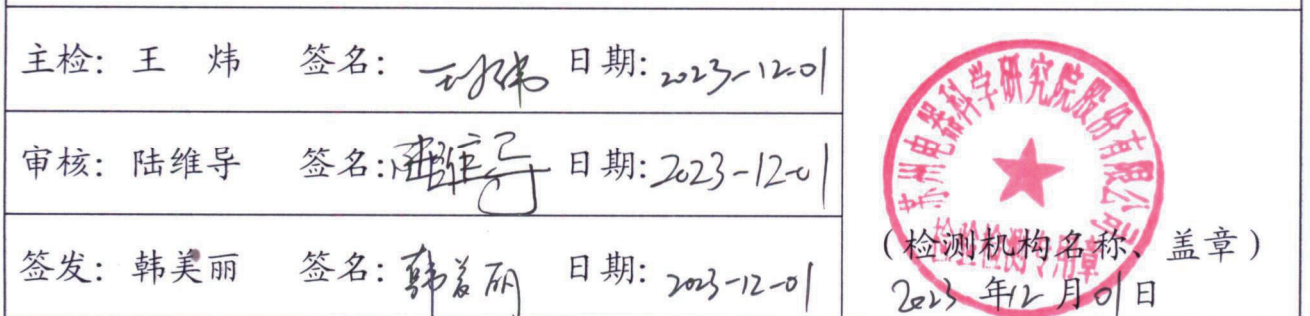 主检: 王 炜 签名: 王炜 日期: 2023-12-01
审核: 陆维导 签名: 陆维导 日期: 2023-12-01
签发: 韩美丽 签名: 韩美丽 日期: 2023-12-01
苏州电器科学研究院股份有限公司
检验检测专用章
(检测机构名称、盖章)
2023 年 12 月 01 日